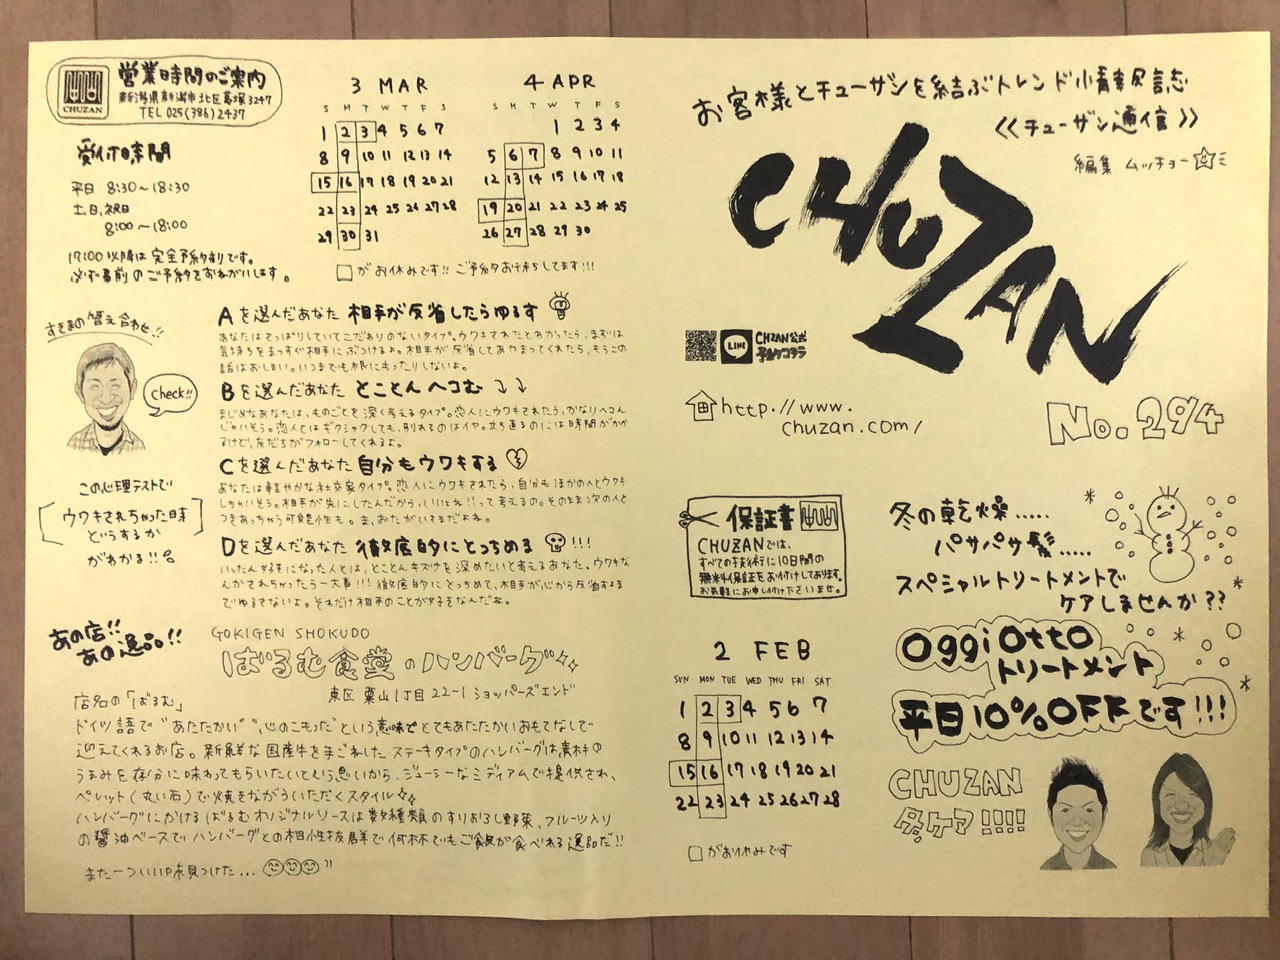 CHUZAN
営業時間のご案内
新潟県新潟市北区葛塚3247
TEL 025(386)2437
受付時間
平日 8:30~18:30
土、日、祝日
8:00~18:00
17:00以降は完全予約制です。
必ず事前のご予約をおねがいします。
3 MAR
S M T W T F S
1 2 3 4 5 6 7
8 9 10 11 12 13 14
15 16 17 18 19 20 21
22 23 24 25 26 27 28
29 30 31
4 APR
S M T W T F S
1 2 3 4
5 6 7 8 9 10 11
12 13 14 15 16 17 18
19 20 21 22 23 24 25
26 27 28 29 30
□がお休みです!! ご予約お待ちしてます!!!
すきまの答え合わせ!!
Check!!
この心理テストで
ウワキされちゃった時
どうするか
がわかる!!
Aを選んだあなた 相手が反省したらゆるす
あなたはさっぱりしていてこだわりのないタイプ。ウワキされたとわかったら、まずは
気持ちをまっすぐ相手にぶつけるよ。相手が反省してあやまってくれたら、もうこの
話はおしまい。いつまでも根にもったりしないよ。
Bを選んだあなた とことんヘコむ
まじめなあなたは、ものごとを深く考えるタイプ。恋人にウワキされたら、かなりヘコん
じゃいそう。恋人とはギクシャクしても、別れるのはイヤ。立ち直るのには時間がかか
るけど、友だちがフォローしてくれるよ。
Cを選んだあなた 自分もウワキする
あなたは軽やかな社交家タイプ。恋人にウワキされたら、自分もほかの人とウワキ
しちゃいそう。相手が先にしたんだから、いいよね!!って考えるの。そのまま次の人と
つきあっちゃう可能性も。ま、おたがいさまだよね。
Dを選んだあなた 徹底的にとっちめる !!!
いったん好きになった人とは、とことんキズナを深めたいと考えるあなた。ウワキな
んかされちゃったら一大事!!! 徹底的にとっちめて、相手が心から反省するま
でゆるさないよ。それだけ相手のことが好きなんだね。
あの店!!
あの逸品!!
GOKIGEN SHOKUDO
ばるむ食堂のハンバーグ
東区 粟山1丁目22-1 ショッパーズエンド
店名の「ばるむ」
ドイツ語で"あたたかい""心のこもった"という意味でとてもあたたかいおもてなしで
迎えてくれるお店。新鮮な国産牛を手ごねしたステーキタイプのハンバーグは素材の
うまみを存分に味わってもらいたいという思いから、ジューシーなミディアムで提供され、
ペレット(丸い石)で焼きながらいただくスタイル
ハンバーグにかけるばるむオリジナルソースは数種類のすりおろし野菜、フルーツ入り
の醤油ベースでハンバーグとの相性抜群で何杯でもご飯が食べれる逸品だ!!
また一ついい味見つけた...
お客様とチューザンを結ぶトレンド小情報誌
《チューザン通信》
編集 ムッチョー
CHUZAN
LINE
CHZAN公式
予約ケコチラ
http://www.
chuzan.com/
No.294
保証書
CHUZANでは、
すべての技術に10日間の
無料保証をお付けしております。
お気軽にお申し付け下さいませ。
冬の乾燥.....
パサパサ髪.....
スペシャルトリートメントで
ケアしませんか??
Oggi Otto
トリートメント
平日10%OFFです!!!
2 FEB
SUN MON TUE WED THU FRI SAT
1 2 3 4 5 6 7
8 9 10 11 12 13 14
15 16 17 18 19 20 21
22 23 24 25 26 27 28
□がお休みです
CHUZAN